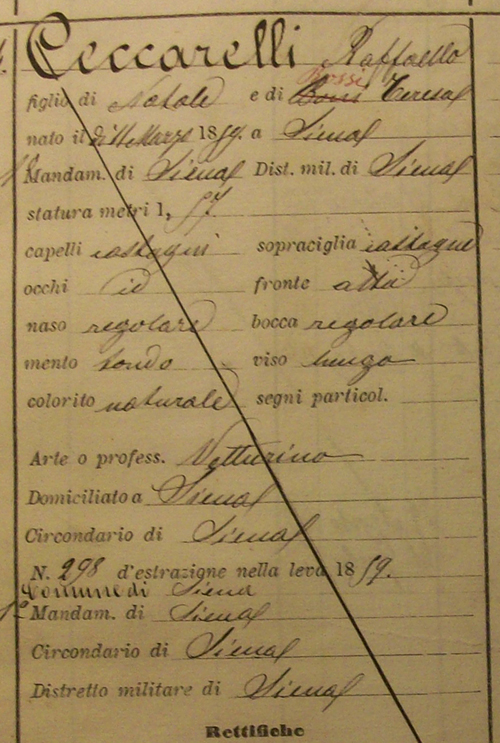 Ceccarelli Raffaello
Rossi
figlio di Natale e di Boni Teresa
nato il dì 11 Marzo 1859. a Siena
1° Mandam. di Siena Dist. mil. di Siena
statura metri 1, 57
capelli castagni sopraciglia castagne
occhi id fronte alta
naso regolare bocca regolare
mento tondo viso lungo
colorito naturale segni particol.
Arte o profess. Vetturino
Domiciliato a Siena
Circondario di Siena
N. 298 d'estrazione nella leva 1859.
Comune di Siena
1° Mandam. di Siena
Circondario di Siena
Distretto militare di Siena
Rettifiche